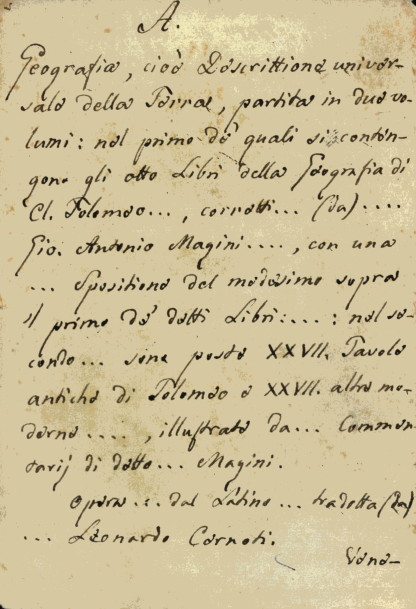 A.
Geografia, cioè Descrittione univer-
sale della Terra, partita in due vo-
lumi: nel primo de' quali si conten-
gono gli otto Libri della Geografia di
Cl. Tolomeo..., corretti... (da)....
Gio. Antonio Magini...., con una
... Spositione del medesimo sopra
il primo de' detti Libri:....: nel se-
condo... sono poste XXVII. Tavole
antiche di Tolomeo e XXVII. altre mo-
derne...., illustrate da... Commen-
tarij di detto... Magini.
Opera... dal Latino... tradotta (da)
... Leonardo Cernoti.
Vene-